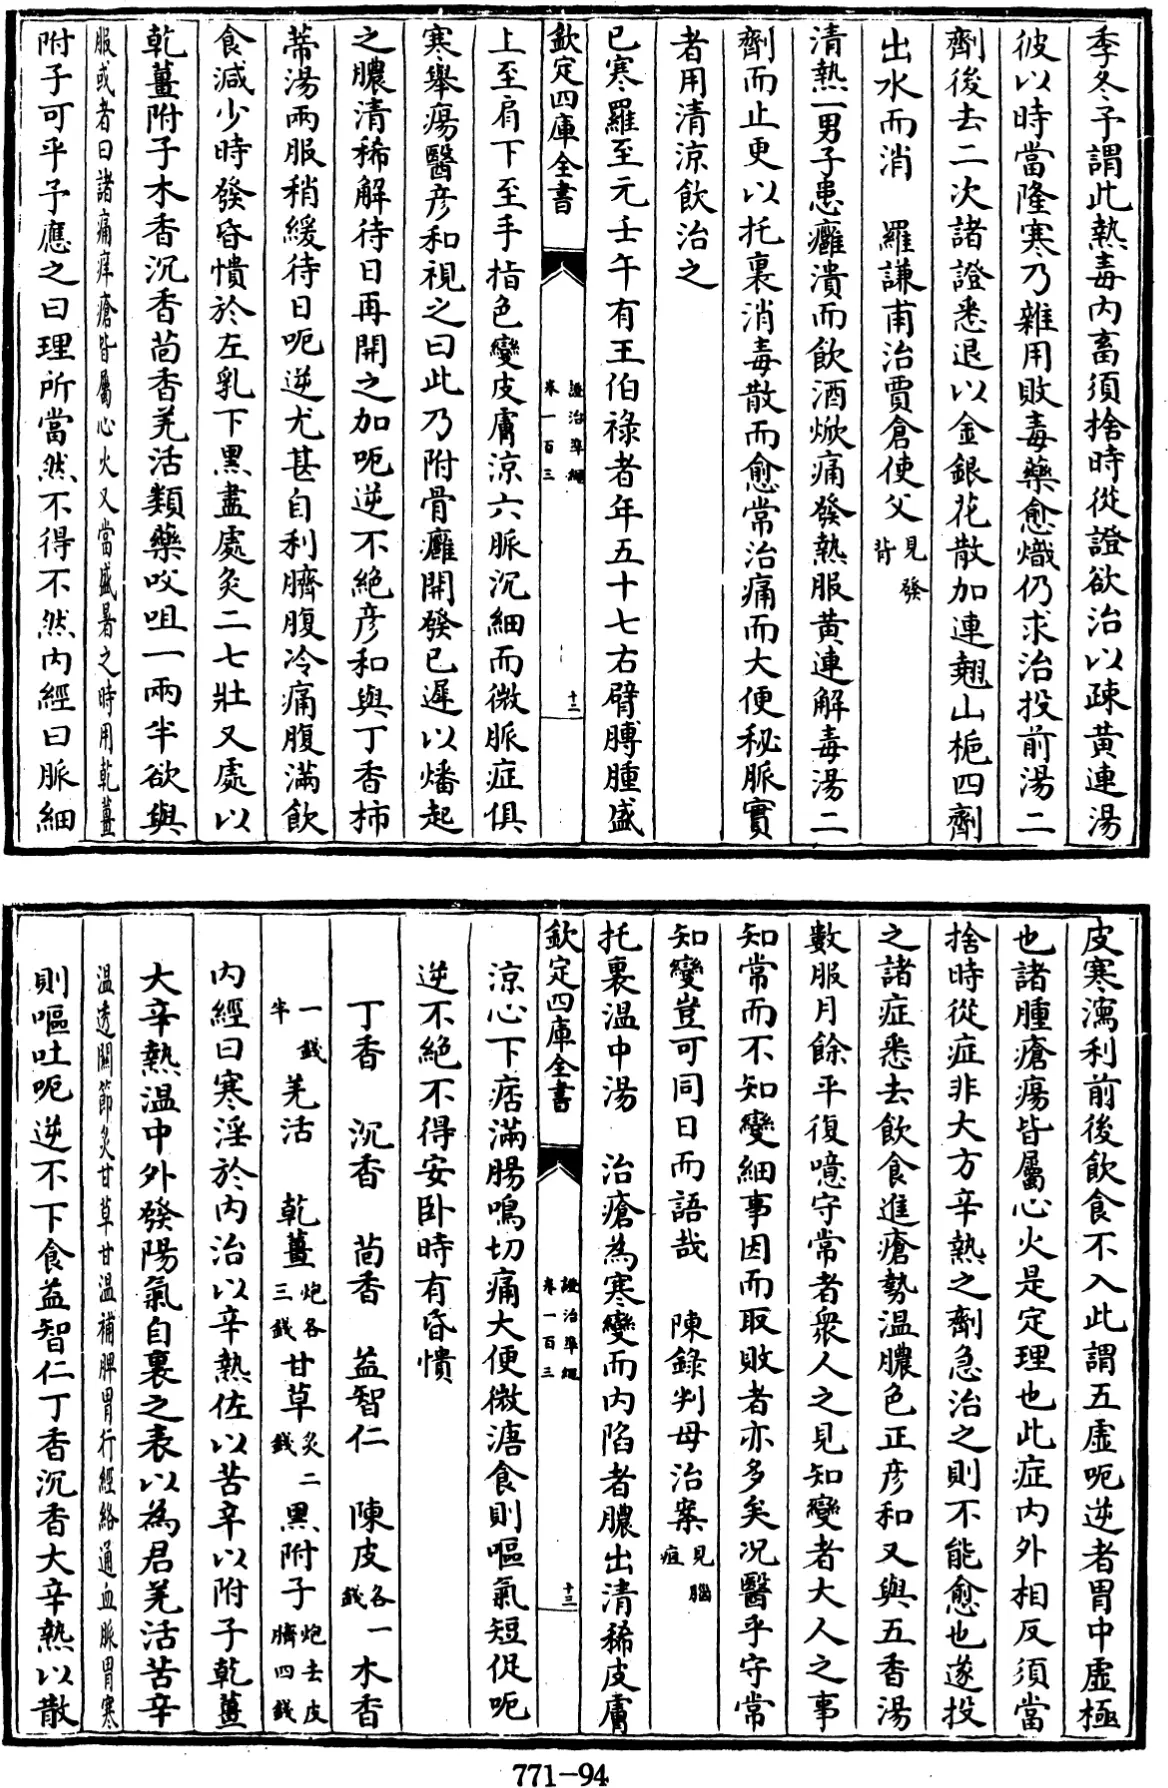 季冬予謂此熱毒内畜須捨時從證欲治以疎黄連湯
彼以時當隆寒乃雜用敗毒藥愈熾仍求治投前湯二
劑後去二次諸證悉退以金銀花散加連翹山梔四劑
出水而消　羅謙甫治賈倉使父見發背
清熱一男子患癰潰而飲酒焮痛發熱服黄連解毒湯二
劑而止更以托裏消毒散而愈常治痛而大便秘脈實
者用清涼飲治之
已寒羅至元壬午有王伯祿者年五十七右臂膊腫盛
欽定四庫全書　證治準繩卷一百三　十三
上至肩下至手指色變皮膚涼六脈沉細而微脈症俱
寒舉瘍醫彦和視之曰此乃附骨癰開發已遲以燔起
之膿清稀解待日再開之加呃逆不絶彦和與丁香柿
蒂湯兩服稍緩待日呃逆尤甚自利臍腹冷痛腹滿飲
食減少時發昏憒於左乳下黑盡處灸二七壯又處以
乾薑附子木香沉香茴香羌活類藥㕮咀一兩半欲與
服或者曰諸痛痒瘡皆屬心火又當盛暑之時用乾薑
附子可乎予應之曰理所當然不得不然内經曰脈細
皮寒瀉利前後飲食不入此謂五虛呃逆者胃中虛極
也諸腫瘡瘍皆屬心火是定理也此症内外相反須當
捨時從症非大方辛熱之劑急治之則不能愈也遂投
之諸症悉去飲食進瘡勢温膿色正彦和又與五香湯
數服月餘平復噫守常者衆人之見知變者大人之事
知常而不知變細事因而取敗者亦多矣况醫乎守常
知變豈可同日而語哉　陳錄判母治案見腦疽
托裏温中湯　治瘡為寒變而内陷者膿出清稀皮膚
欽定四庫全書　證治準繩卷一百三　十三
涼心下痞滿腸鳴切痛大便微溏食則嘔氣短促呃
逆不絶不得安卧時有昏憒
丁香　沉香　茴香　益智仁　陳皮各一錢　木香
一錢半　羌活　乾薑炮各三錢　甘草炙二錢　黑附子炮去皮臍四錢
内經曰寒淫於内治以辛熱佐以苦辛以附子乾薑
大辛熱温中外發陽氣自裏之表以為君羌活苦辛
温透關節炙甘草甘温補脾胃行經絡通血脈胃寒
則嘔吐呃逆不下食益智仁丁香沉香大辛熱以散
771-94